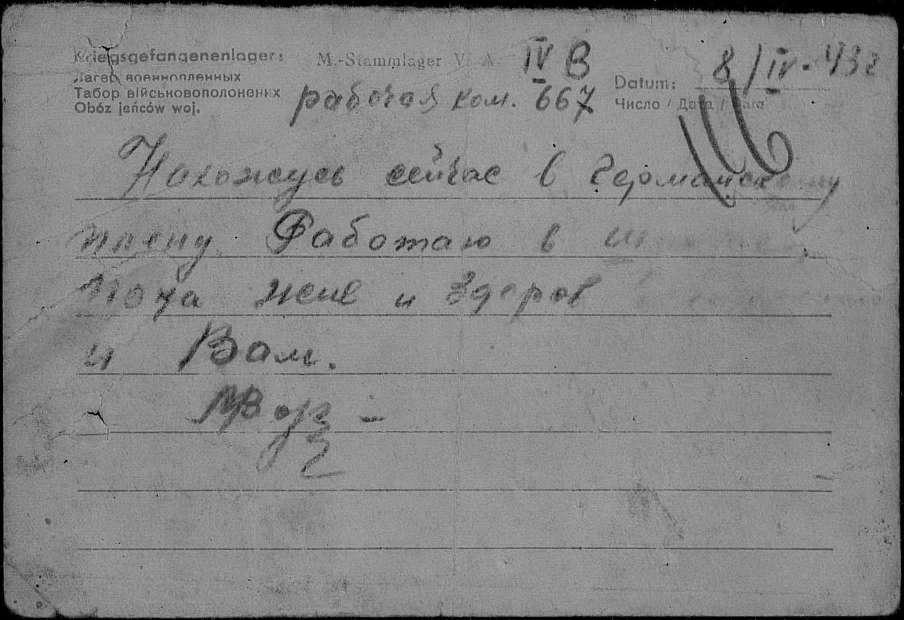 Kriegsgefangenenlager: M.-Stammlager V A IV B
Лагерь военнопленных
Табор військовополонених рабочая ком. 667
Obóz jeńców woj.
Datum: 8/IV-43г
Число / Дата / Data
Нахожусь сейчас в Германском
плену. Работаю в
Пока жив и здоров
и Вам.